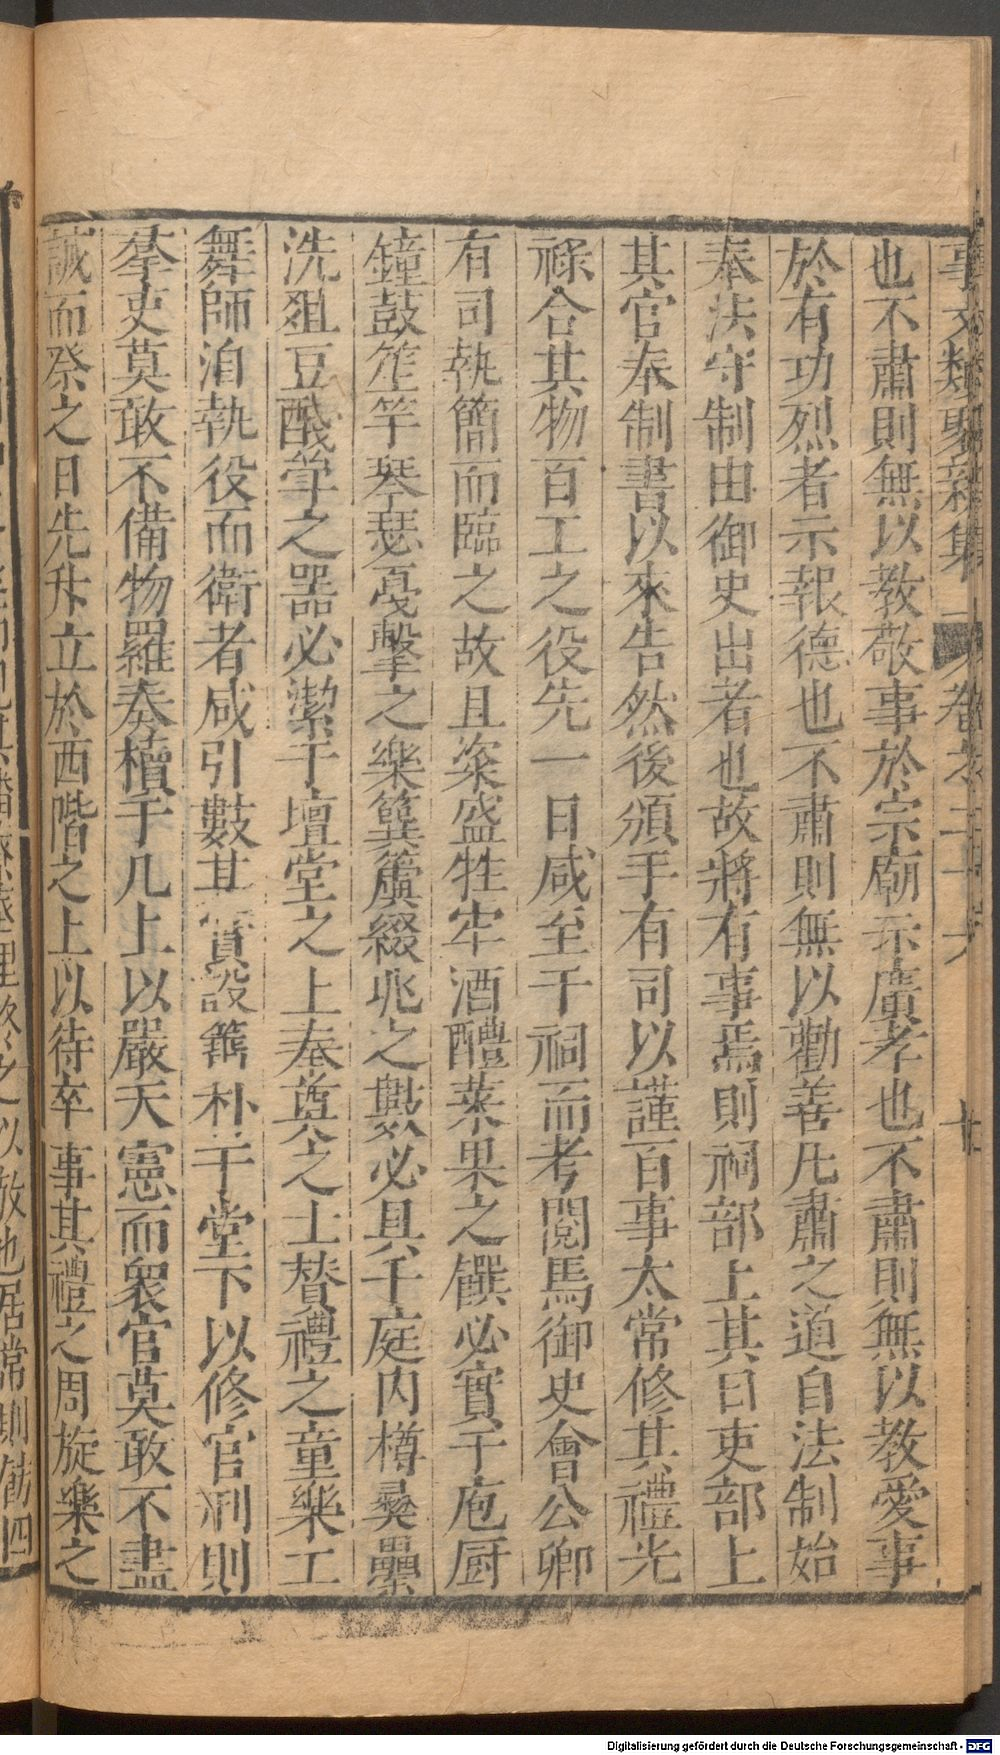 事文類聚新集 卷之二十六 十七
也不肅則無以教敬事於宗廟示廣孝也不肅則無以教愛事
於有功烈者示報德也不肅則無以勸善凡肅之道自法制始
奉法守制由御史出者也故將有事焉則祠部上其日吏部上
其官奉制書以來告然後頒于有司以謹百事太常修其禮光
祿合其物百工之役先一日咸至于祠而考閱焉御史會公卿
有司執簡而臨之故且粢盛牲牢酒醴菜果之饌必實于庖厨
鐘鼓笙竽琴瑟戛擊之樂簨簴綴兆之數必具于庭内樽彞罍
洗俎豆醆斝之器必潔于壇堂之上奉奠之士贊禮之童樂工
舞師洎執役而衛者咸引數其實設簿朴于堂下以修官刑則
羣吏莫敢不備物羅奏櫝于几上以嚴天憲而衆官莫敢不盡
誠而祭之日先升立於西階之上以待卒事其禮之周旋樂之
Digitalisierung gefördert durch die Deutsche Forschungsgemeinschaft - DFG